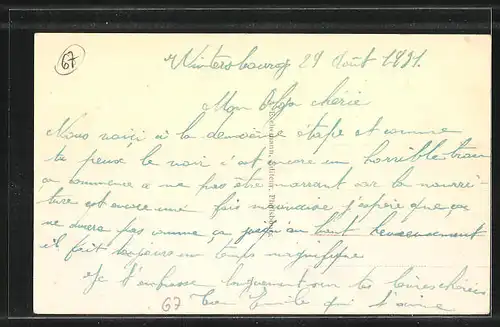 67
Wintersbourg 29 Août 1931.
Mon Olga chérie
Nous voici à la deuxième étape et comme
tu peux le voir c'est encore un horrible trou
ça commence à ne pas être marrant car la nourri-
ture est encore une fois mauvaise j'espère que ça
ne durera pas comme ça jusqu'au bout heureusement
il fait toujours un temps magnifique
Je t'embrasse longuement sur tes lèvres chéries
Ton Emile qui t'aime
67